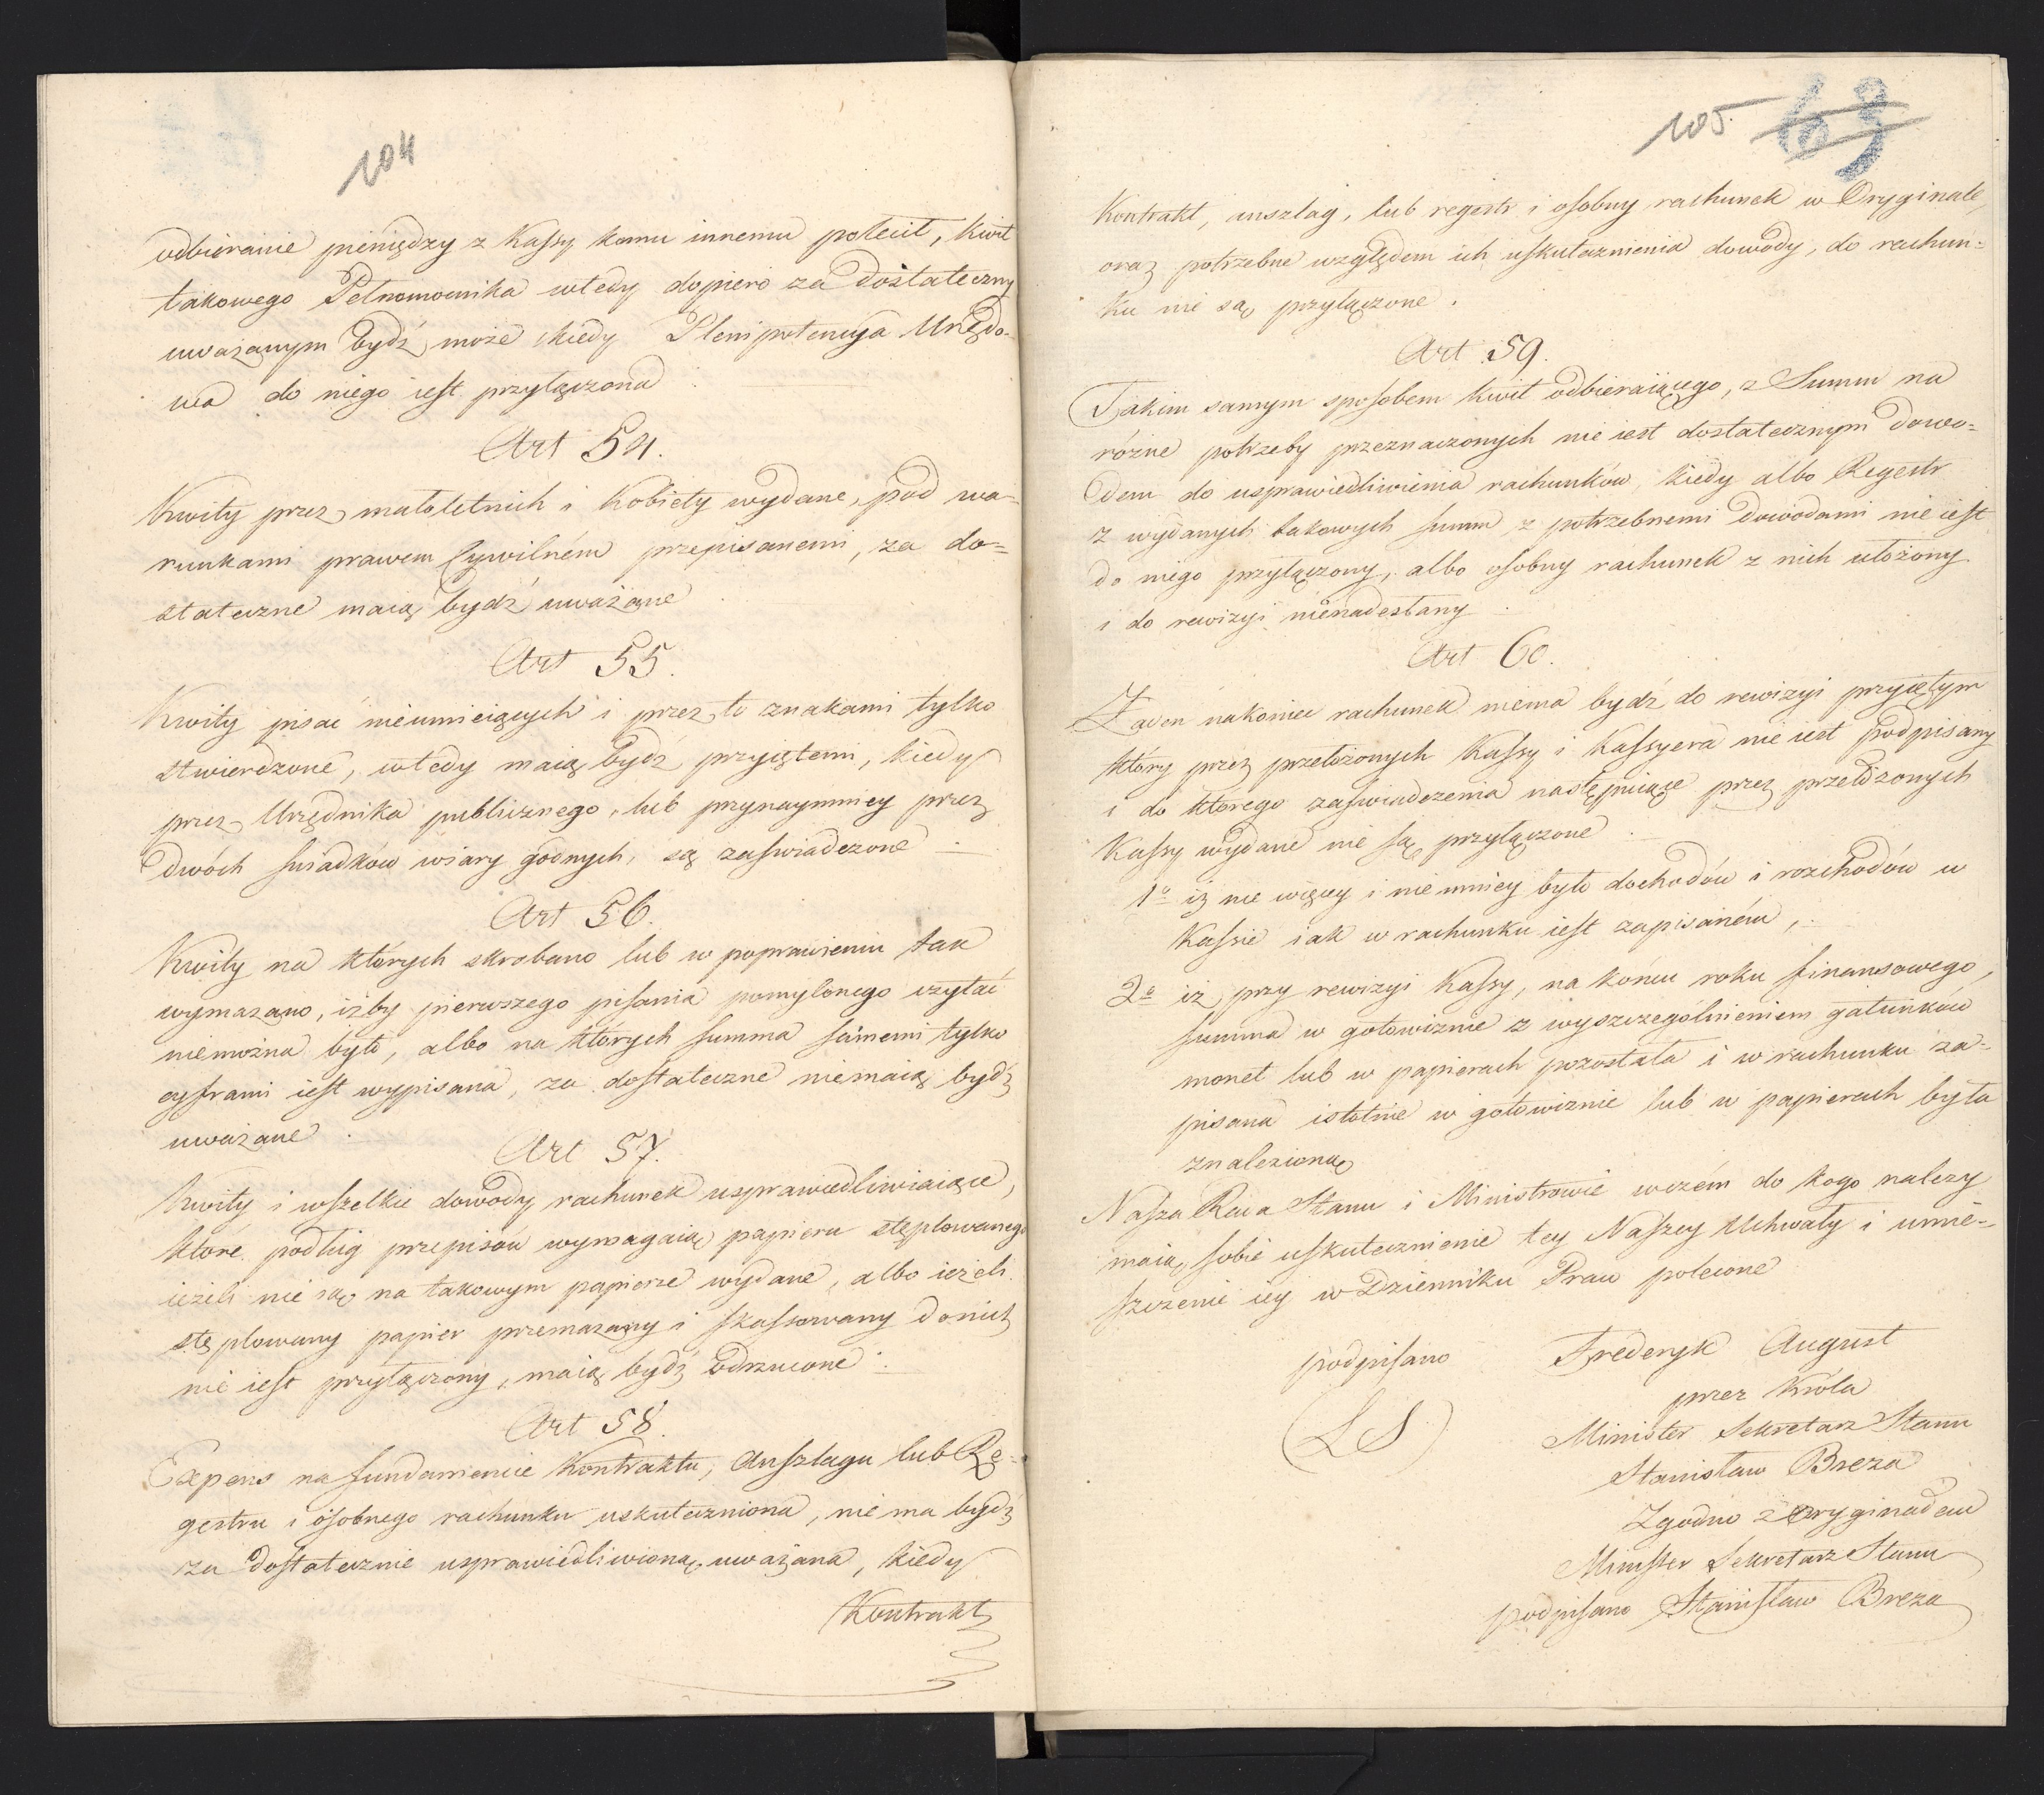 104
odbieranie pieniędzy z Kassy komu innemu polecił, kwit
takowego Pełnomocnika wtedy dopiero za dostateczny
uważanym bydź może kiedy Plenipotencya Urzędo-
wa do niego iest przyłączona.
Art 54.
Kwity przez małoletnich i kobiety wydane, pod wa-
runkami prawem Cywilném przepisanemi, za do=
stateczne maią bydź uważane.
Art 55.
Kwity pisać nieumieiących i przez to znakami tylko
stwierdzone, wtedy maią bydź przyiętemi, kiedy
przez Urzędnika publicznego, lub przynaymniey przez
dwóch świadków wiary godnych, są zaświadczone.
Art 56.
Kwity na których skrobano lub w poprawieniu tak
wymazano, iżby pierwszego pisania pomylonego czytać
niemożna było, albo na których summa samemi tylko
cyframi iest wypisana, za dostateczne niemaią bydź
uważane.
Art 57.
Kwity i wszelkie dowody rachunek usprawiedliwiaiące,
które podług przepisów wymagaią papieru stęplowanego
ieżeli nie są na takowym papierze wydane, albo ieżeli
stęplowany papier przemazany i skassowany do nich
nie iest przyłączony, maią bydź odrzucone.
Art 58.
Expens na fundamencie Kontraktu, Anszlagu lub Re-
gestru i osobnego rachunku uskuteczniona, nie ma bydź
za dostatecznie usprawiedliwioną uważana, kiedy
Kontrakt
105. 63
Kontrakt, anszlag, lub regestr i osobny rachunek w Oryginale,
oraz potrzebne względem ich uskutecznienia dowody, do rachun=
ku nie są przyłączone.
Art 59.
Takim samym sposobem kwit odbieraiącego, z Summ na
różne potrzeby przeznaczonych nie iest dostatecznym dowo=
dem do usprawiedliwienia rachunków, kiedy albo Regestr
z wydanych takowych summ z potrzebnemi dowodami nie iest
do niego przyłączony, albo osobny rachunek z nich ułożony
i do rewizyi nienadesłany.
Art 60.
Żaden nakoniec rachunek niema bydź do rewizyi przyiętym
który przez przełożonych Kassy i Kassyera nie iest podpisany
i do którego zaświadczenia następuiące przez przełożonych
Kassy wydane nie są przyłączone.
1o iż nie więcey i nie mniey było dochodów i rozchodów w
Kassie iak w rachunku iest zapisaném,
2o iż przy rewizyi Kassy, na końcu roku finansowego,
summa w gotowiznie z wyszczególnieniem gatunków
monet lub w papierach pozostała i w rachunku za-
pisana istotnie w gotowiznie lub w papierach była
znalezioną
Nasza Rada Stanu i Ministrowie wczém do kogo należy
maią sobie uskutecznienie tey Naszey Uchwały i umie-
szczenie iey w Dzienniku Praw polecone
podpisano Frederyk August
przez Króla
(LS)
Minister Sekretarz Stanu
Stanisław Breza
Zgodno z Oryginałem
Minister Sekretarz Stanu
podpisano Stanisław Breza